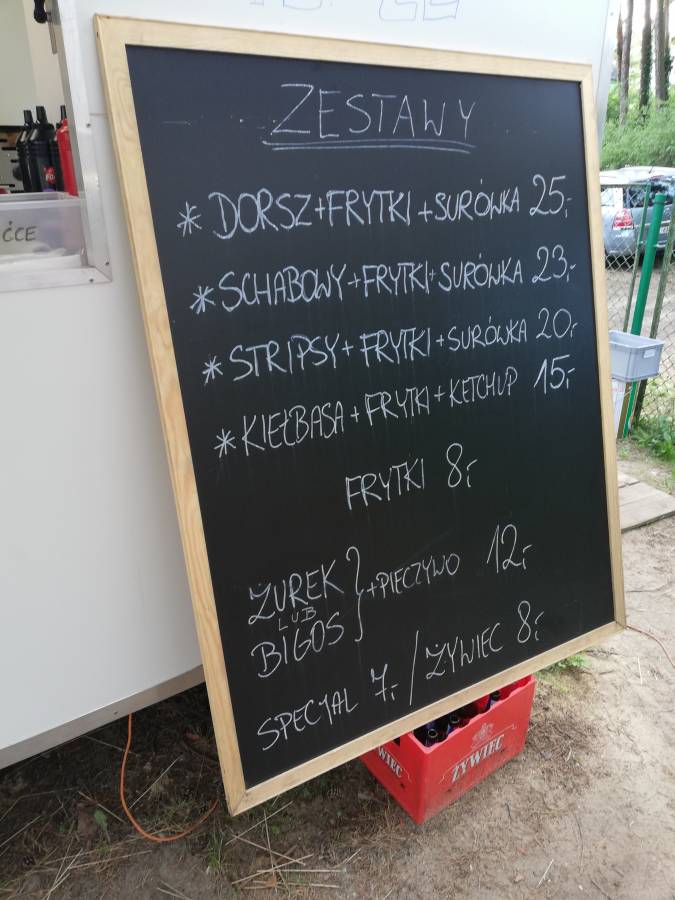 ZESTAWY
* DORSZ+FRYTKI+SURÓWKA 25,-
* SCHABOWY+FRYTKI+SURÓWKA 23,-
* STRIPSY+FRYTKI+SURÓWKA 20,-
* KIEŁBASA+FRYTKI+KETCHUP 15,-
FRYTKI 8,-
ŻUREK
LUB
BIGOS
} +PIECZYWO 12,-
SPECJAL 7,- / ŻYWIEC 8,-
ŻYWIEC
WIEC
ĆCE